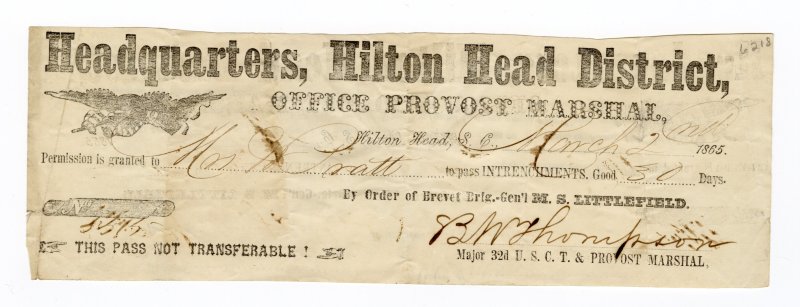 6218
Headquarters, Hilton Head District,
OFFICE PROVOST MARSHAL,
Hilton Head, S. C., March 2nd 1865.
Permission is granted to Mrs Pratt to pass INTRENCHMENTS. Good 30 Days.
By Order of Brevet Brig.-Gen'l M. S. LITTLEFIELD.
THIS PASS NOT TRANSFERABLE !
B W Thompson
Major 32d U. S. C. T. & PROVOST MARSHAL,